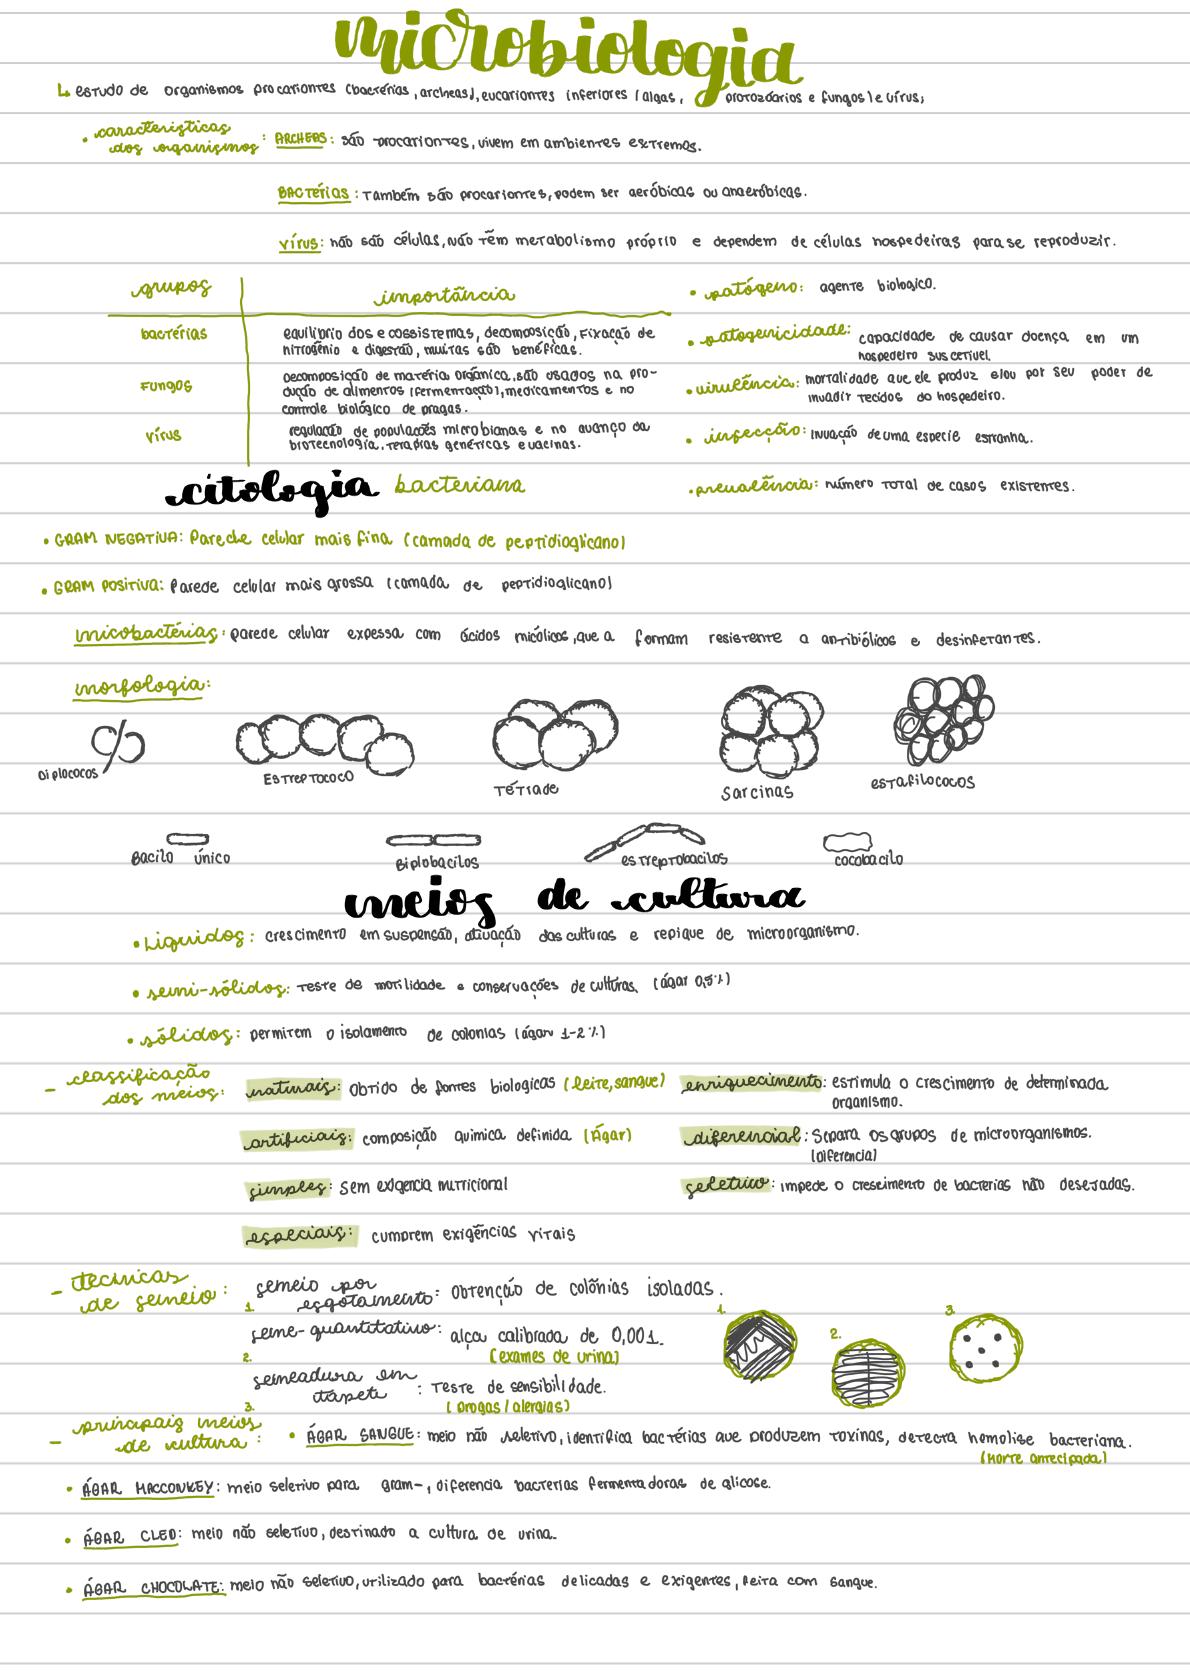 microbiologia
↳ estudo de organismos procariontes (bactérias, archeas), eucariontes inferiores (algas, protozoários e fungos) e vírus;
• características dos organismos: ARCHEAS: são procariontes, vivem em ambientes extremos.
BACTÉRIAS: também são procariontes, podem ser aeróbicas ou anaeróbicas.
vírus: não são células, não têm metabolismo próprio e dependem de células hospedeiras para se reproduzir.
grupos importância
bactérias equilibrio dos ecossistemas, decomposição, fixação de
nitrogênio e digestão, muitas são benéficas.
Fungos decomposição de matéria orgânica, são usados na pro-
dução de alimentos (fermentação), medicamentos e no
controle biológico de pragas.
vírus regulação de populações microbianas e no avanço da
biotecnologia, terapias genéticas e vacinas.
• patógeno: agente biologico.
• patogenicidade: capacidade de causar doença em um
hospedeiro suscetivel
• virulência: mortalidade que ele produz e/ou por seu poder de
invadir tecidos do hospedeiro.
• infecção: invação de uma especie estranha.
• prevalência: número total de casos existentes.
citologia bacteriana
• GRAM NEGATIVA: Parede celular mais fina (camada de peptidioglicano)
• GRAM POSITIVA: Parede celular mais grossa (camada de peptidioglicano)
micobactérias: parede celular expessa com ácidos micólicos, que a formam resistente a antibiólicos e desinfetantes.
morfologia:
Diplococos
Estreptococo
Tétrade
Sarcinas
estafilococos
Bacilo único
Biplobacilos
estreptobacilos
cocobacilo
meios de cultura
• Liquidos: crescimento em suspensão, ativação das culturas e repique de microorganismo.
• semi-sólidos: teste de motilidade e conservações de culturas. (ágar 0,5%)
• sólidos: permitem o isolamento de colonias (ágar 1-2%)
- classificação
dos meios:
naturais: Obtido de fontes biologicas (leite, sangue)
artificiais: composição quimica definida (Ágar)
simples: Sem exigencia nutricional
especiais: cumprem exigências vitais
enriquecimento: estimula o crescimento de determinada
organismo.
diferencial: Separa os grupos de microorganismos.
(diferencia)
seletivo: impede o crescimento de bacterias não desejadas.
- tecnicas
de semeio:
1. semeio por
esgotamento: Obtenção de colônias isoladas.
2. seme-quantitativo: alça calibrada de 0,001.
(exames de urina)
3. semeadura em
tapete: Teste de sensibilidade.
(Drogas / alergias)
1.
2.
3.
- principais meios
de cultura:
• ÁGAR SANGUE: meio não seletivo, identifica bactérias que produzem toxinas, detecta hemolise bacteriana.
(Morte antecipada)
• ÁGAR MACCONKEY: meio seletivo para gram-, diferencia bacterias fermentadoras de glicose.
• ÁGAR CLED: meio não seletivo, destinado a cultura de urina.
• ÁGAR CHOCOLATE: meio não seletivo, utilizado para bactérias delicadas e exigentes, feita com sangue.